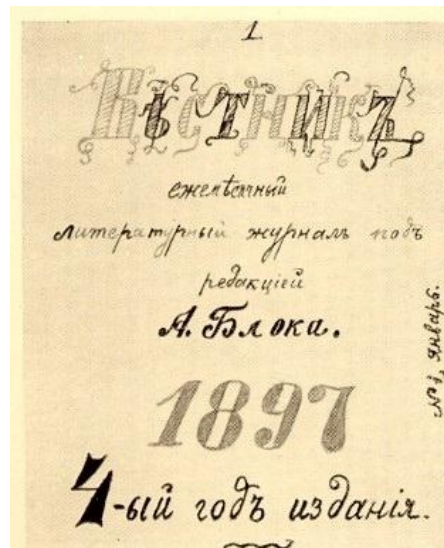 1.
Вѣстникъ
ежемѣсячный
литературный журналъ подъ
редакціей
А. Блока.
1897
4-ый годъ изданія.
№ 1, январь.